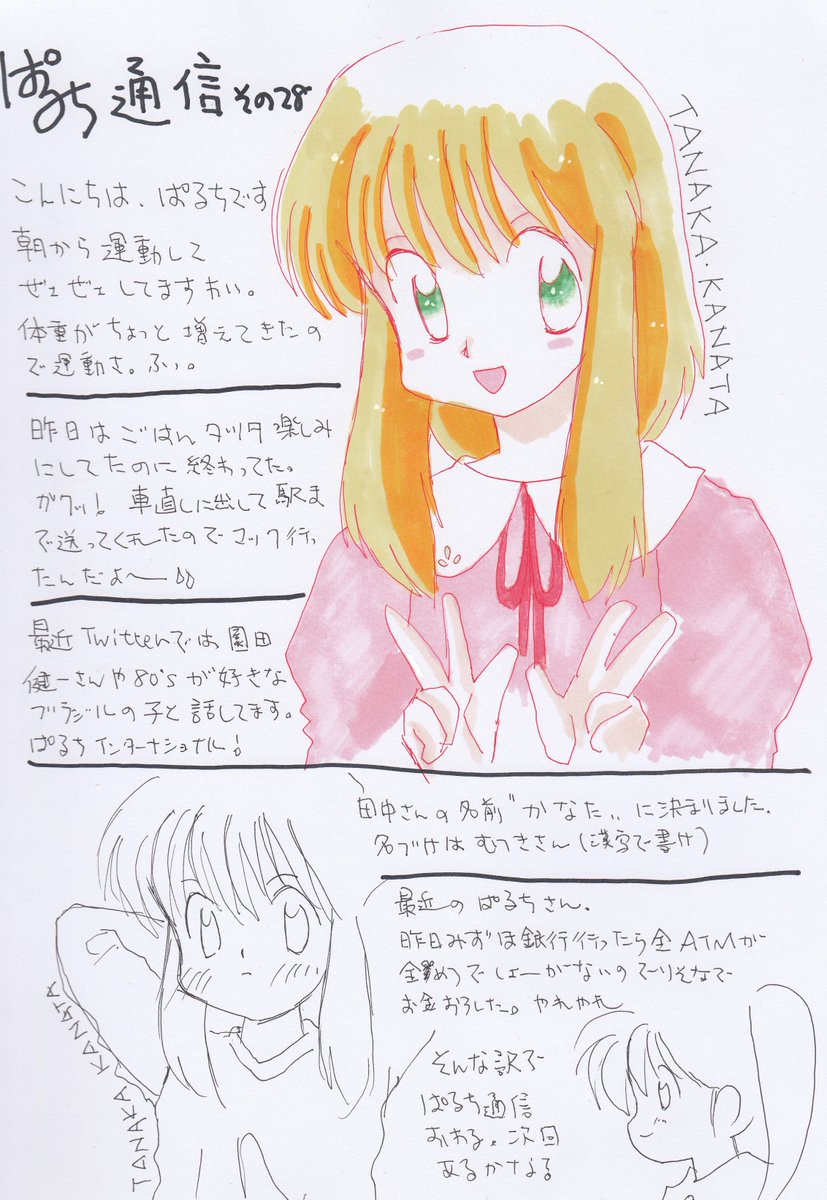 ぱるち通信 その28
TANAKA・KANATA
こんにちは、ぱるちです
朝から運動して
ぜェぜェしてますわい。
体重がちょっと増えてきたの
で運動さ。ふぃ。
昨日はごはんタツタ楽しみ
にしてたのに終わってた。
ガクッ! 車直しに出して駅ま
で送ってくれたのでマック行っ
たんだよ〜
最近Twitterでは園田
健一さんや80'sが好きな
ブラジルの子と話してます。
ぱるちインターナショナル!
田中さんの名前〝かなた〟に決まりました。
名づけはむつきさん(漢字で書け)
最近のぱるちさん。
昨日みずほ銀行行ったら全ATMが
全滅でしょーがないのでりそなで
お金おろした。やれやれ
そんな訳で
ぱるち通信
おわる。次回
あるかなる
TANAKA KANATA